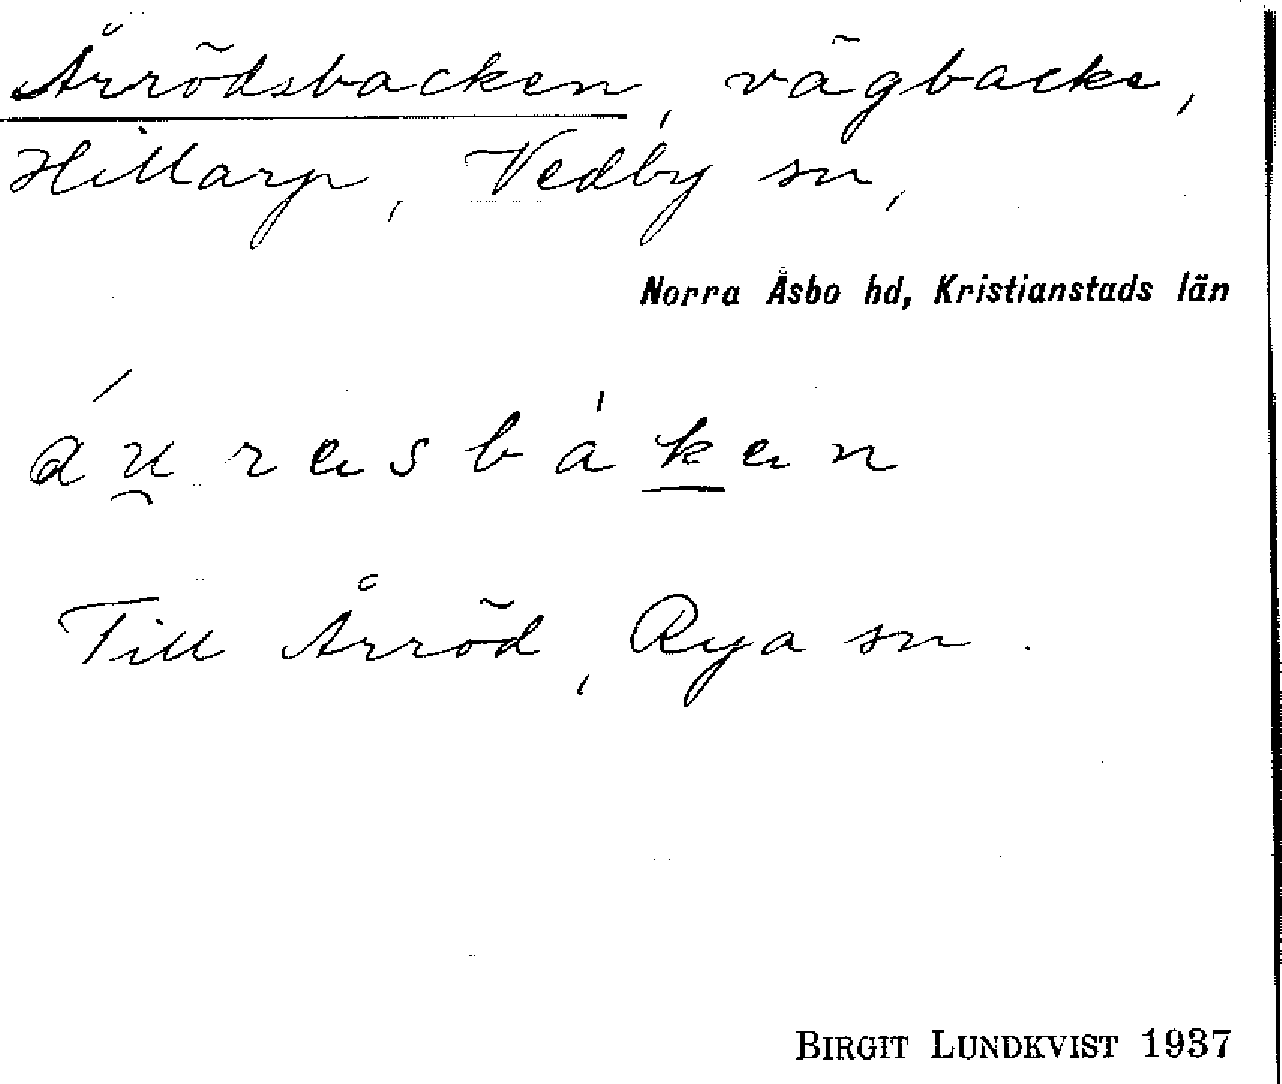 Årrödsbacken, vägbacke,
Hillarp, Vedby sn,
Norra Åsbo hd, Kristianstads län
áu̯rəsbàkən
Till Årröd, Rya sn.
BIRGIT LUNDKVIST 1937